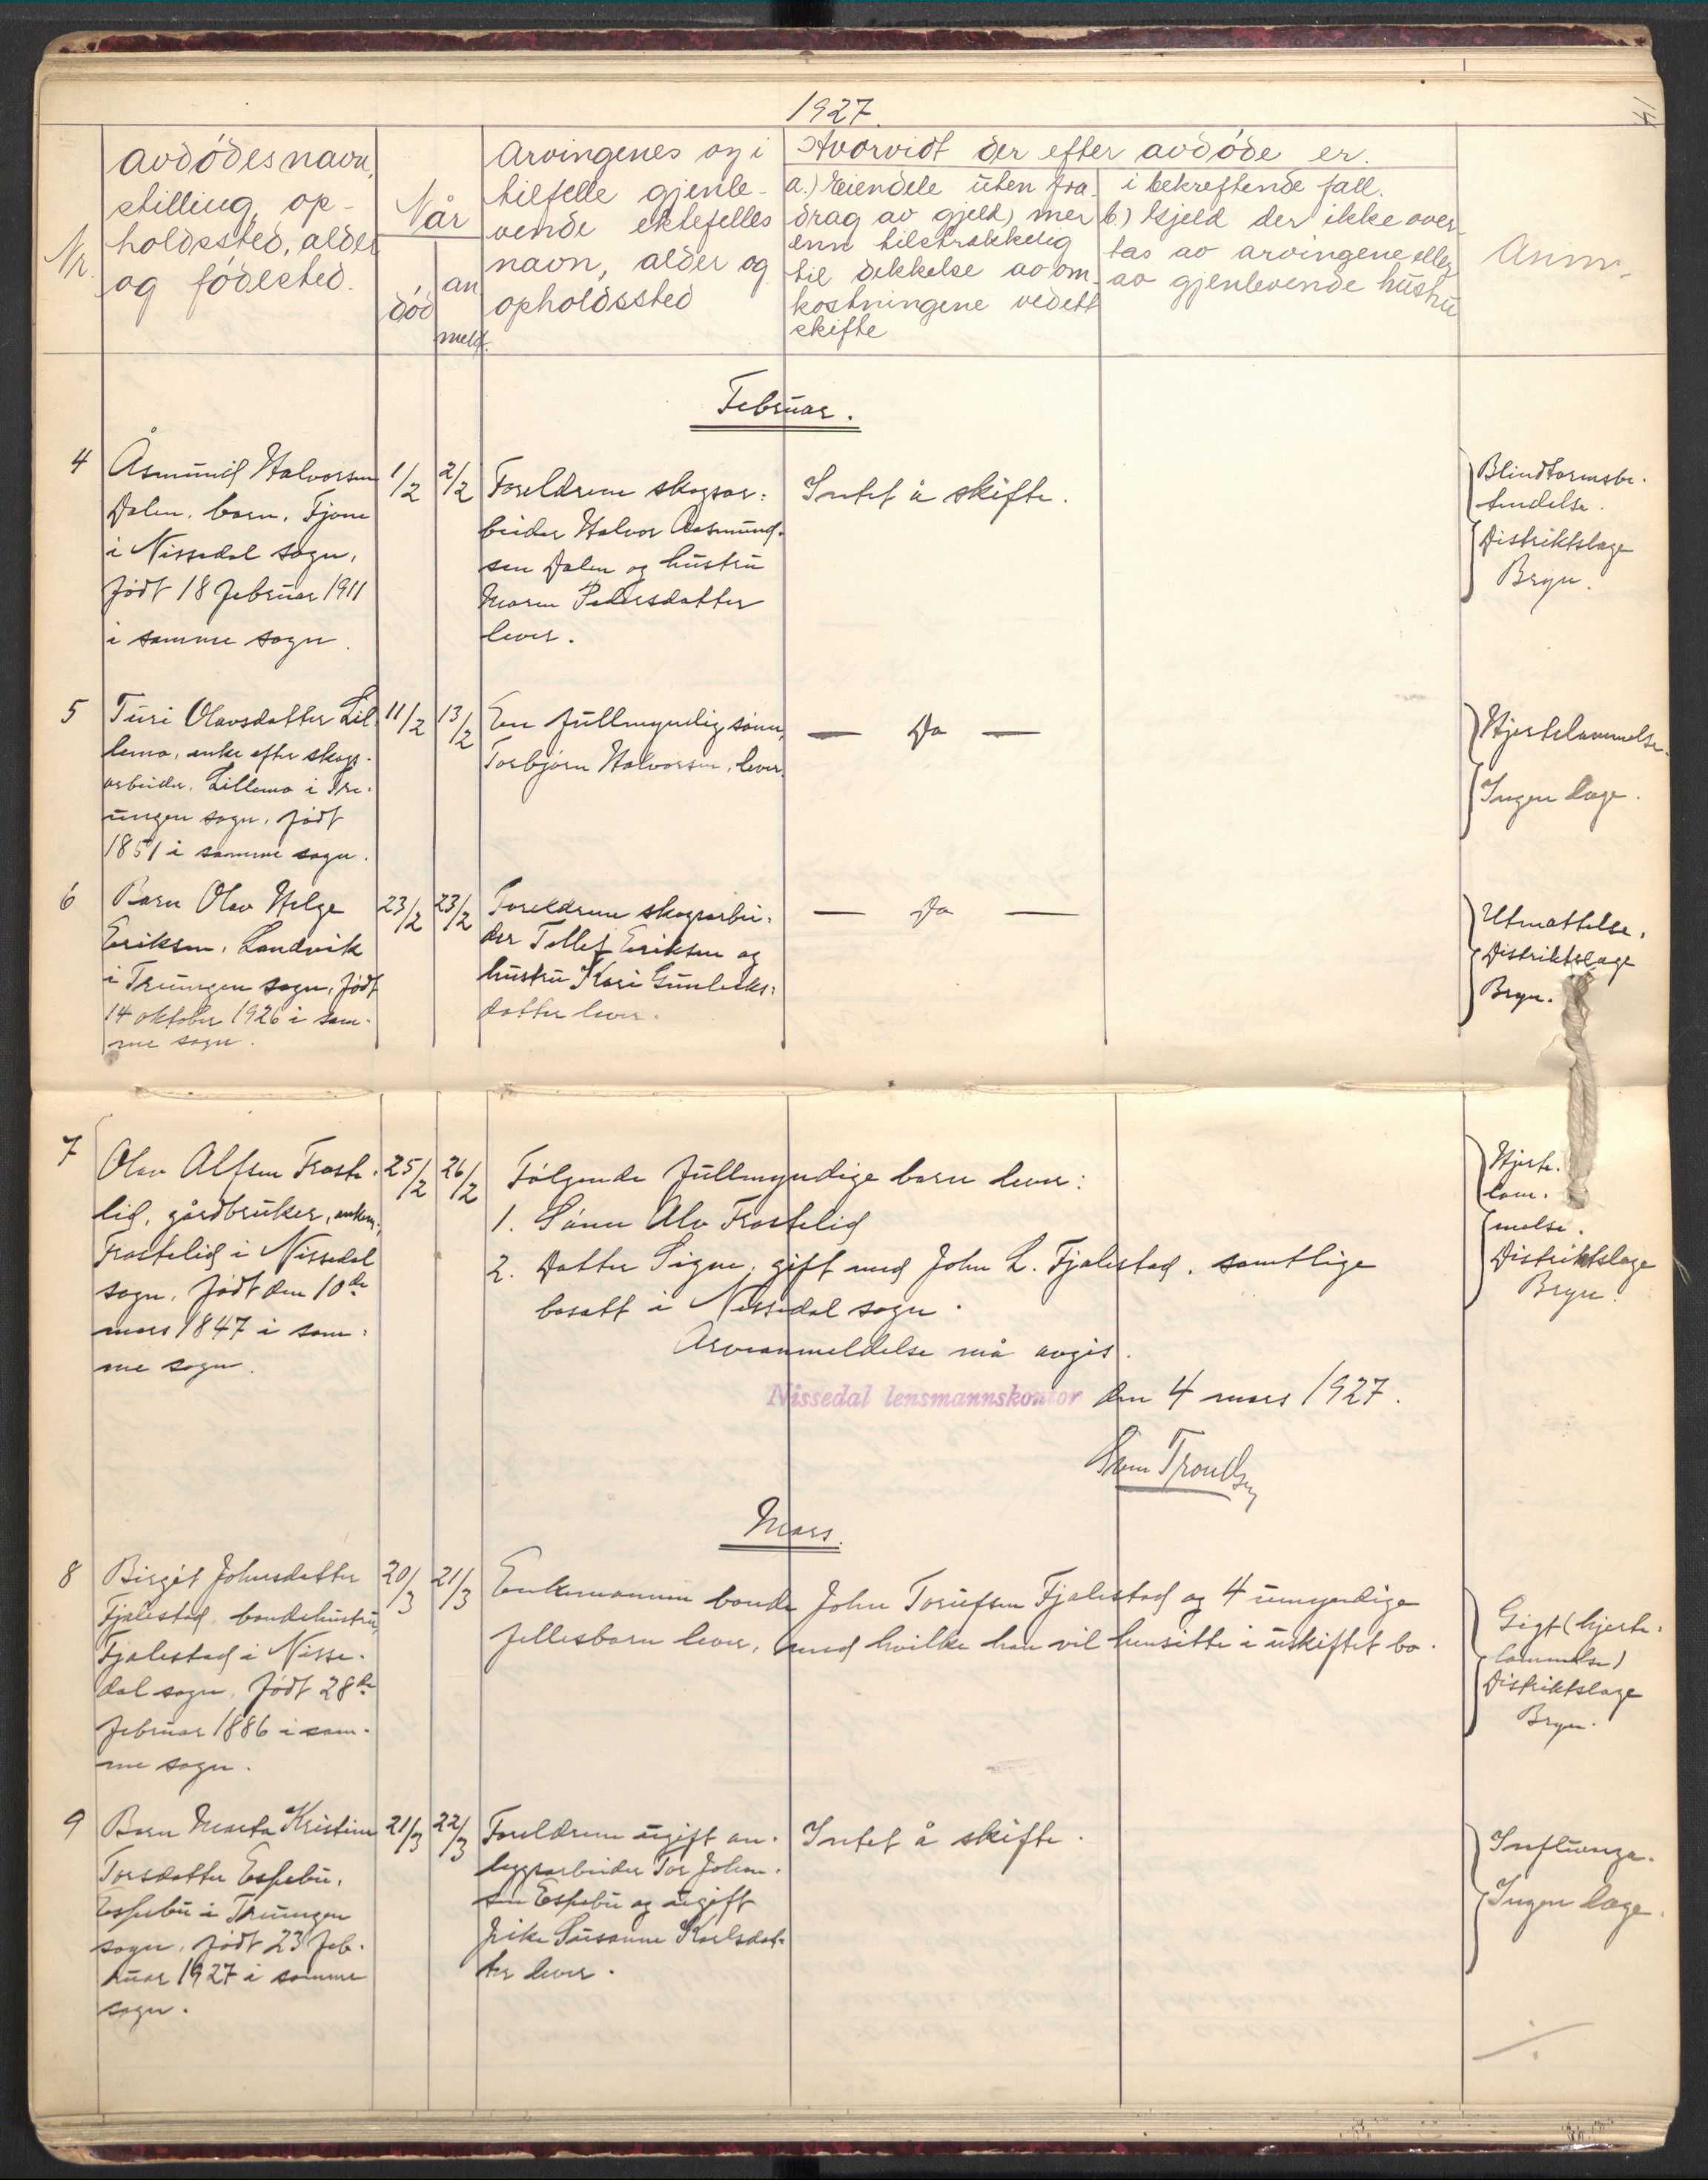 1927.
Nr.
Avdødes navn,
stilling, op-
holdssted, alder
og fødested.
Når
død
an
meld.
Arvingenes og i
tilfelle gjenle-
vende ektefelles
navn, alder og
opholdssted
Hvorvidt der efter avdøde er.
a.) Eiendele uten fra-
drag av gjeld, mer
enn tilstrekkelig
til dekkelse av om-
kostningene ved ett
skifte
i bekreftende fall.
b.) Gjeld der ikke over-
tas av arvingene eller
av gjenlevende hustru
Anm.
Februar.
4
Åsmund Halvorsen
Dalen, barn, Fjone
i Nissedal sogn,
født 18 februar 1911
i samme sogn.
1/2
2/2
Foreldrene skogsar-
beider Halvor Aasmund-
sen Dalen og hustru
Maren Pedersdatter
lever.
Intet å skifte.
Blindtarmsbe-
tendelse.
Distriktslæge
Bryn.
5
Turi Olavsdatter Lil-
lemo, enke efter skogs-
arbeider, Lillemo i Tre-
ungen sogn, født
1851 i samme sogn.
11/2
13/2
En fullmyndig sønn,
Torbjørn Halvorsen, lever.
— Do —
Hjertelammelse.
Ingen læge.
6
Barn Olav Helge
Eriksen, Landvik
i Treungen sogn, født
14 oktober 1926 i sam-
me sogn.
23/2
23/2
Foreldrene skogsarbei-
der Tellef Eriksen og
hustru Kari Gunleiks-
datter lever.
— Do —
Utmattelse.
Distriktslæge
Bryn.
7
Olav Alfsen Froste-
lid, gårdbruker, enkem.,
Frostelid i Nissedal
sogn, født den 10de
mars 1847 i sam-
me sogn.
25/2
26/2
Følgende fullmyndige barn lever:
1. Sønn Alv Frostelid
2. Datter Signe, gift med John L. Fjalestad, samtlige
bosatt i Nissedal sogn.
Arveanmeldelse må avgis.
Hjerte-
lam-
melse.
Distriktslæge
Bryn.
Nissedal lensmannskontor den 4 mars 1927.
Trondsen
Mars.
8
Birgit Johnsdatter
Fjalestad, bondehustru,
Fjalestad i Nisse-
dal sogn, født 28de
februar 1886 i sam-
me sogn.
20/3
21/3
Enkemannen bonde John Torufsen Fjalestad og 4 umyndige
fellesbarn lever, med hvilke han vil hensitte i uskiftet bo.
Gigt (hjerte-
lammelse)
Distriktslæge
Bryn.
9
Barn Marta Kristine
Torsdatter Espebu,
Espebu i Treungen
sogn, født 23 feb-
ruar 1927 i samme
sogn.
21/3
22/3
Foreldrene ugift an-
leggsarbeider Tor John-
sen Espebu og ugift
pike Susanne Karlsdat-
ter lever.
Intet å skifte.
Influenza.
Ingen læge.